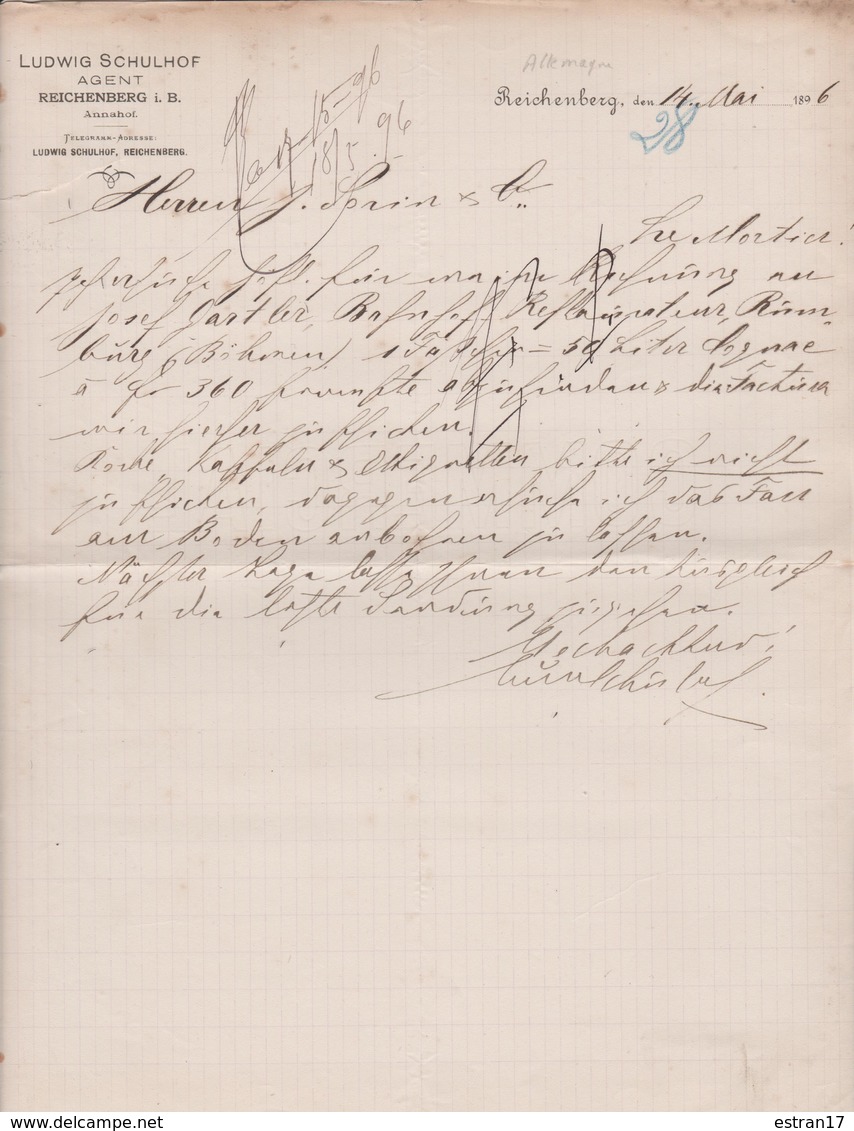 LUDWIG SCHULHOF
AGENT
REICHENBERG i. B.
Annahof.
TELEGRAMM-ADRESSE:
LUDWIG SCHULHOF, REICHENBERG.
Allemagne
Reichenberg, den 14. Mai 1896
28
18/5 96
Herren J. Sorin & Co.
Le Mortier!
Ich ersuche höfl. für meine Rechnung an
Josef Gartler, Bahnhof Restaurateur, Rum-
burg (Böhmen) 1 Fässchen = 50 Liter Cognac
à fr 360 abzusenden & die Factura
mir hieher zu schicken.
Korke, Kapseln & Etiquetten bitte ich nicht
zu schicken, dagegen ersuche ich das Fass
am Boden anbohren zu lassen.
Nächster Tage lasse Ihnen den Ausgleich
für die letzte Sendung zugehen.
Hochachtend!
Schulhof
estran17